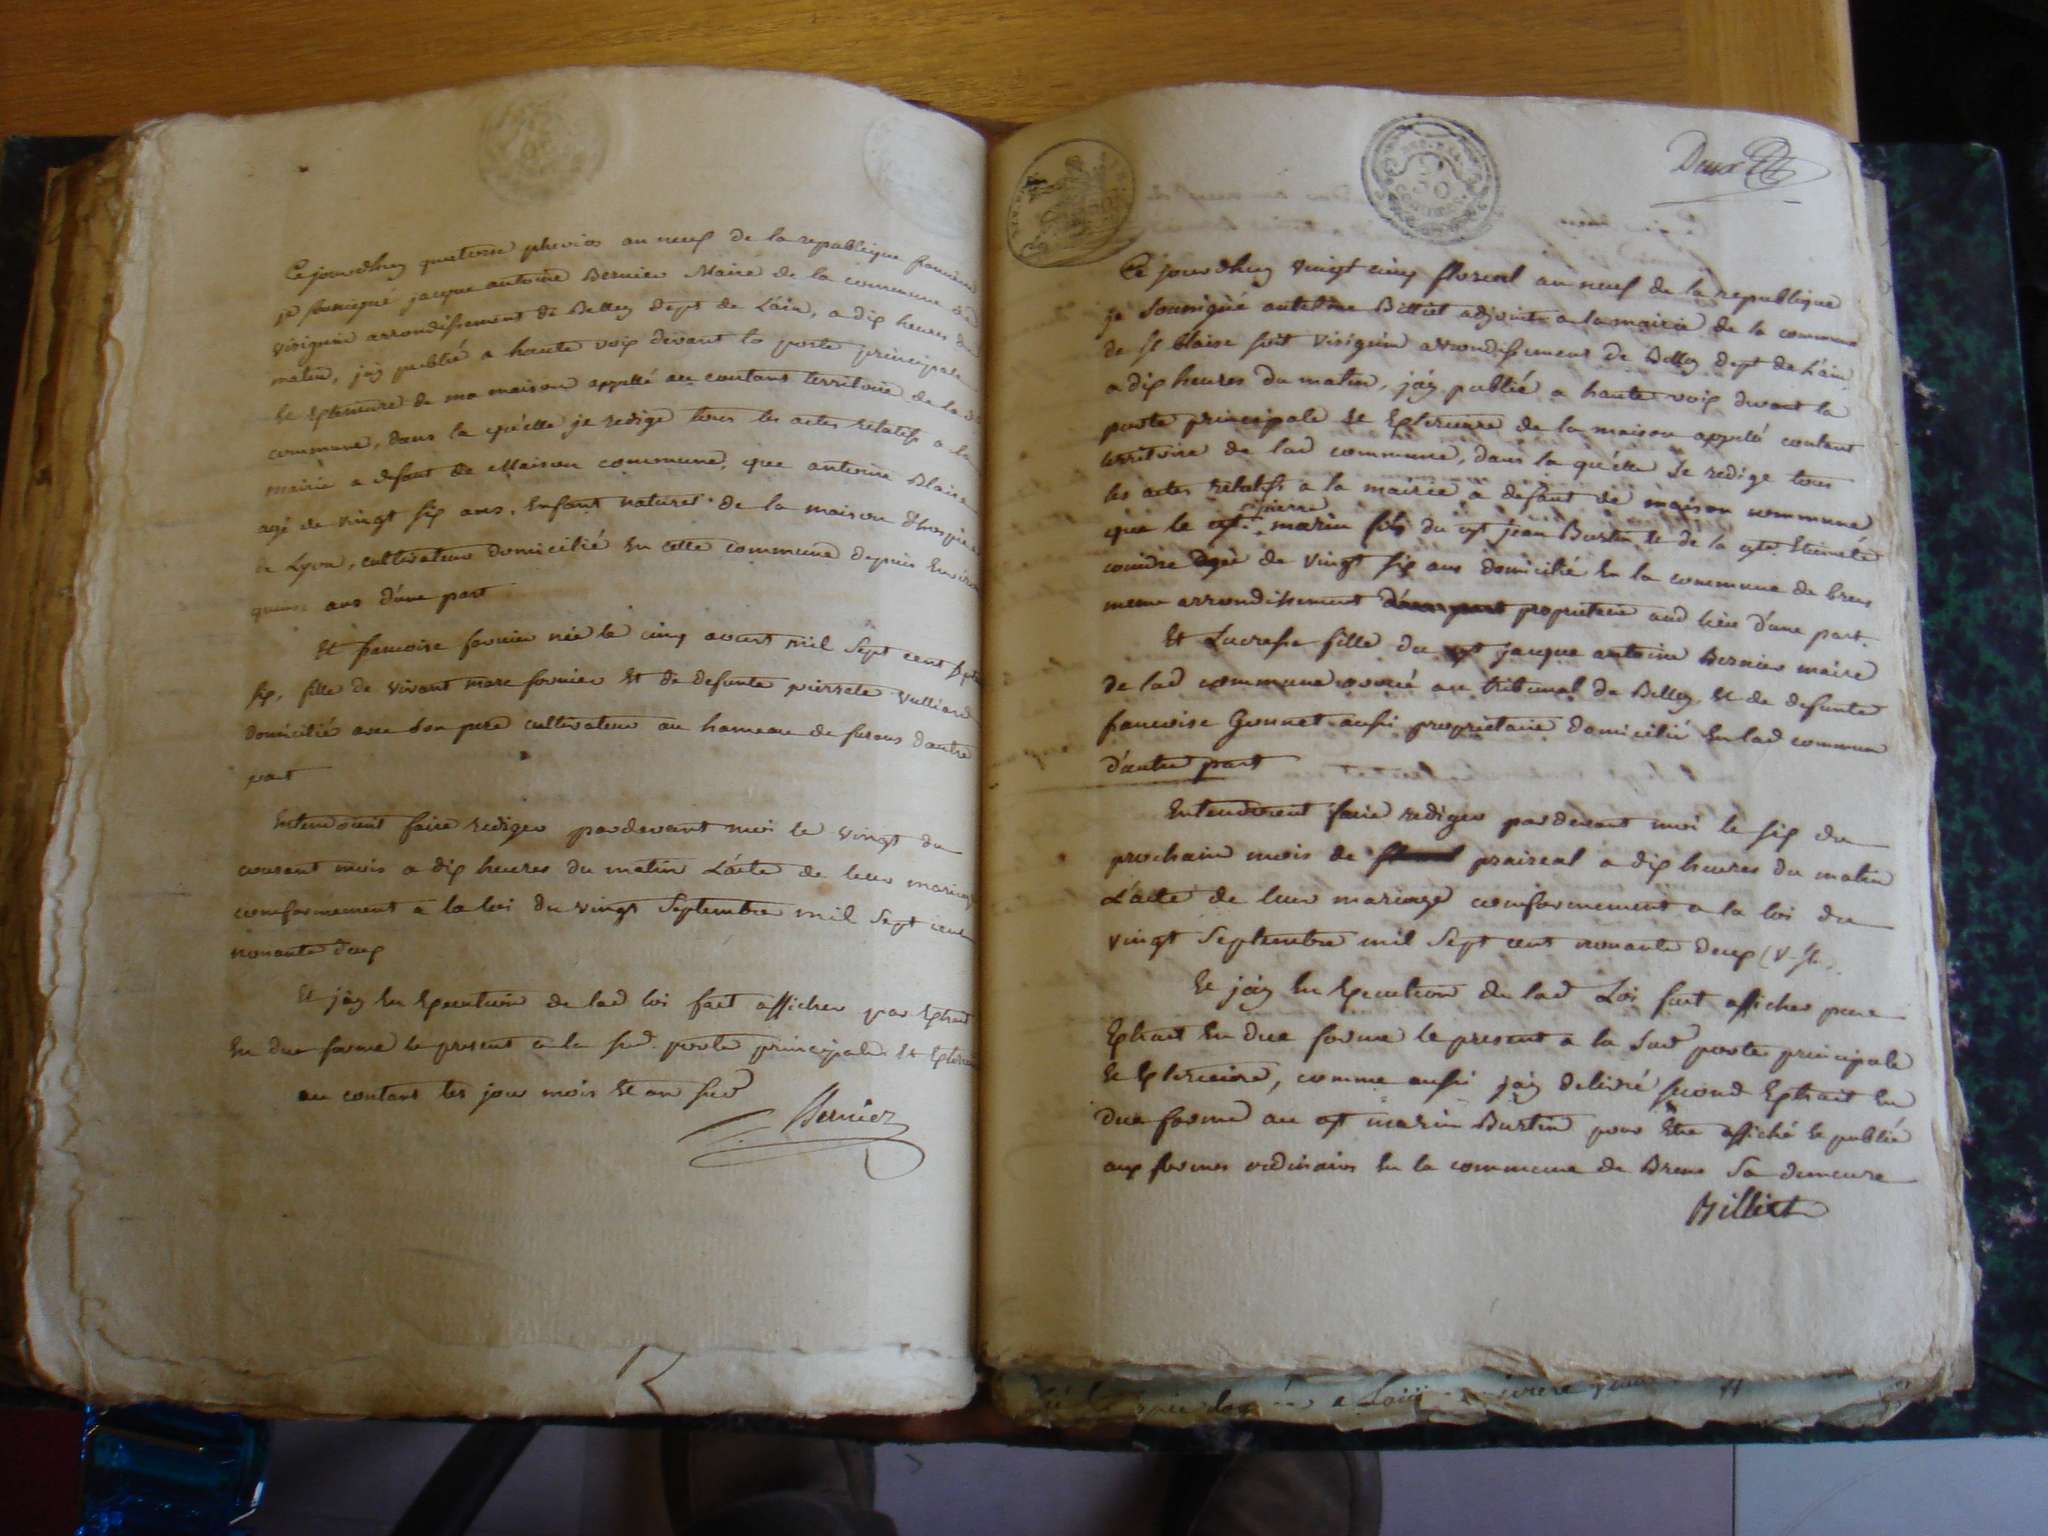 Ce jourdhuy quatorse pluvios an neuf de la republique
je soussigné jacque antoine Bernier Maire de la commune de
virignin arrondissement de Belley dept de L'ain, a dix heures du
matin, jay publié a haute voix devant la porte principale
Et Exterieure de ma maison appellé au contant territoire de la de
commune, dans la qu'elle je redige tous les actes relatifs a la
mairie a defaut de Maison commune, que antoine Blaise
agé de vingt six ans, Enfant naturel de la maison d'hospice
de Lyon, cultivateur domicilié En cette commune depuis Environ
quinse ans d'une part
Et francoise fornier née le cinq avust mil sept cent
six, fille de vivant marc fornier Et de defunte pierrete vulliard
domicilié avec son pere cultivateur au hameau de d'autre
part
Entendoient faire rediger pardevant moi le vingt du
courant mois a dix heures du matin L'acte de leur mariage
conformement a la loi du vingt Septembre mil Sept cent
nonante deux
Et jay En Execution de lad loi fait afficher par Extrait
En due forme le present a la sud. porte principale Et Exterieure
au contant les jour mois Et an sud
Bernier
Deux
Ce jourdhuy vingt cinq floreal an neuf de la republique
je soussigné antelme Billiet adjoint a la mairie de la commune
de st blaise soit virignin arrondissement de Belley dept de L'ain
a dix heures du matin, jay publié a haute voix devant la
porte principale Et Exterieure de la maison appellé contant
territoire de lad commune, dans la qu'elle Je redige tous
les actes relatifs a la mairie a defaut de maison commune
pierre
que le cyt. marin fils du cyt jean Burtin Et de la cyte
agée de vingt six ans domicilié En la commune de brens
meme arrondissement proprietaire aud lieu d'une part.
Et Lucresse fille du cyt jacque antoine Bernier maire
de lad commune avoué au tribunal de Belley, Et de defunte
francoise Gonnet aussi proprietaire domicilié En lad commune
d'autre part
Entendoient faire rediger pardevant moi le six du
prochain mois de praireal a dix heures du matin
L'acte de leur mariage conformement a la loi du
vingt Septembre mil Sept cent nonante deux (v. st.
Et jay En Execution de lad Loi fait afficher par
Extrait En due forme le present a la sud porte principale
Et Exterieure, comme aussi jay delivré second Extrait En
due forme au cyt marin Burtin pour Etre affiché Et publié
aux formes ordinaires En la commune de Brens Sa demeure
Billiet